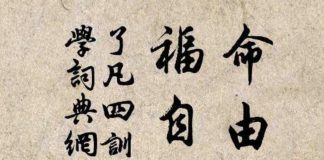 命由
福自
了凡四訓
學詞典網